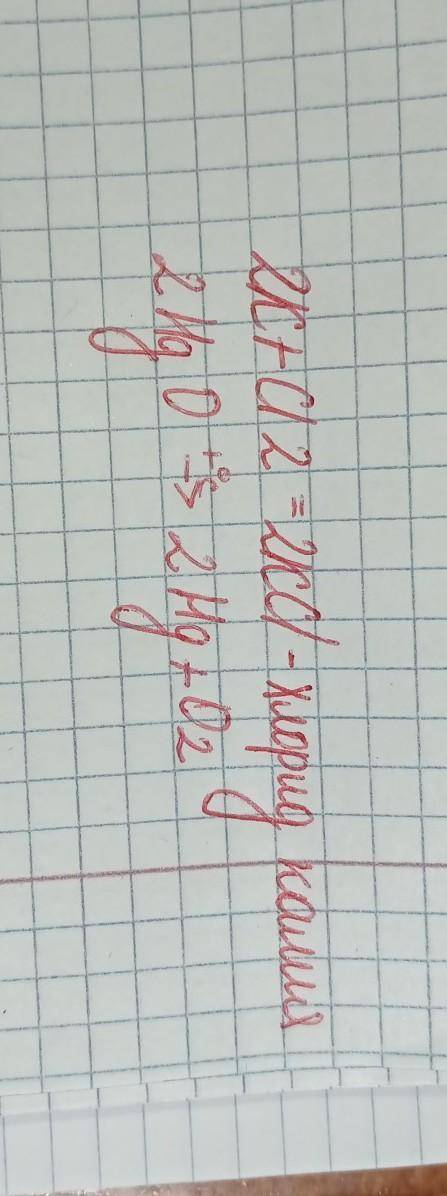 2K + Cl2 = 2KCl - хлорид калия
2HgO t°→ 2Hg + O2